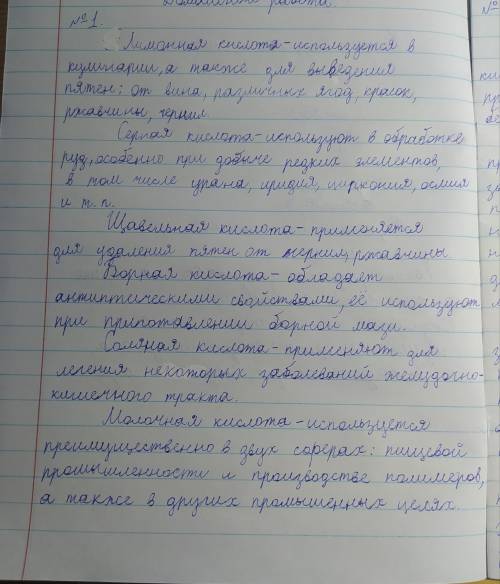 Домашняя работа.
№1.
Лимонная кислота - используется в
кулинарии, а также для выведения
пятен: от вина, различных ягод, красок,
ржавчины, чернил.
Серная кислота - используют в обработке
руд, особенно при добыче редких элементов,
в том числе урана, иридия, циркония, осмия
и т. п.
Щавельная кислота - применяется
для удаления пятен от чернил, ржавчины
Борная кислота - обладает
антиптическими свойствами, её используют
при приготавлении борной мази.
Соляная кислота - применяют для
легения некоторых заболеваний желудочно-
кишечного тракта.
Молочная кислота - используется
преимущественно в звух сферах: пищевой
промышленности и производстве полимеров,
а также в других промышенных целях.